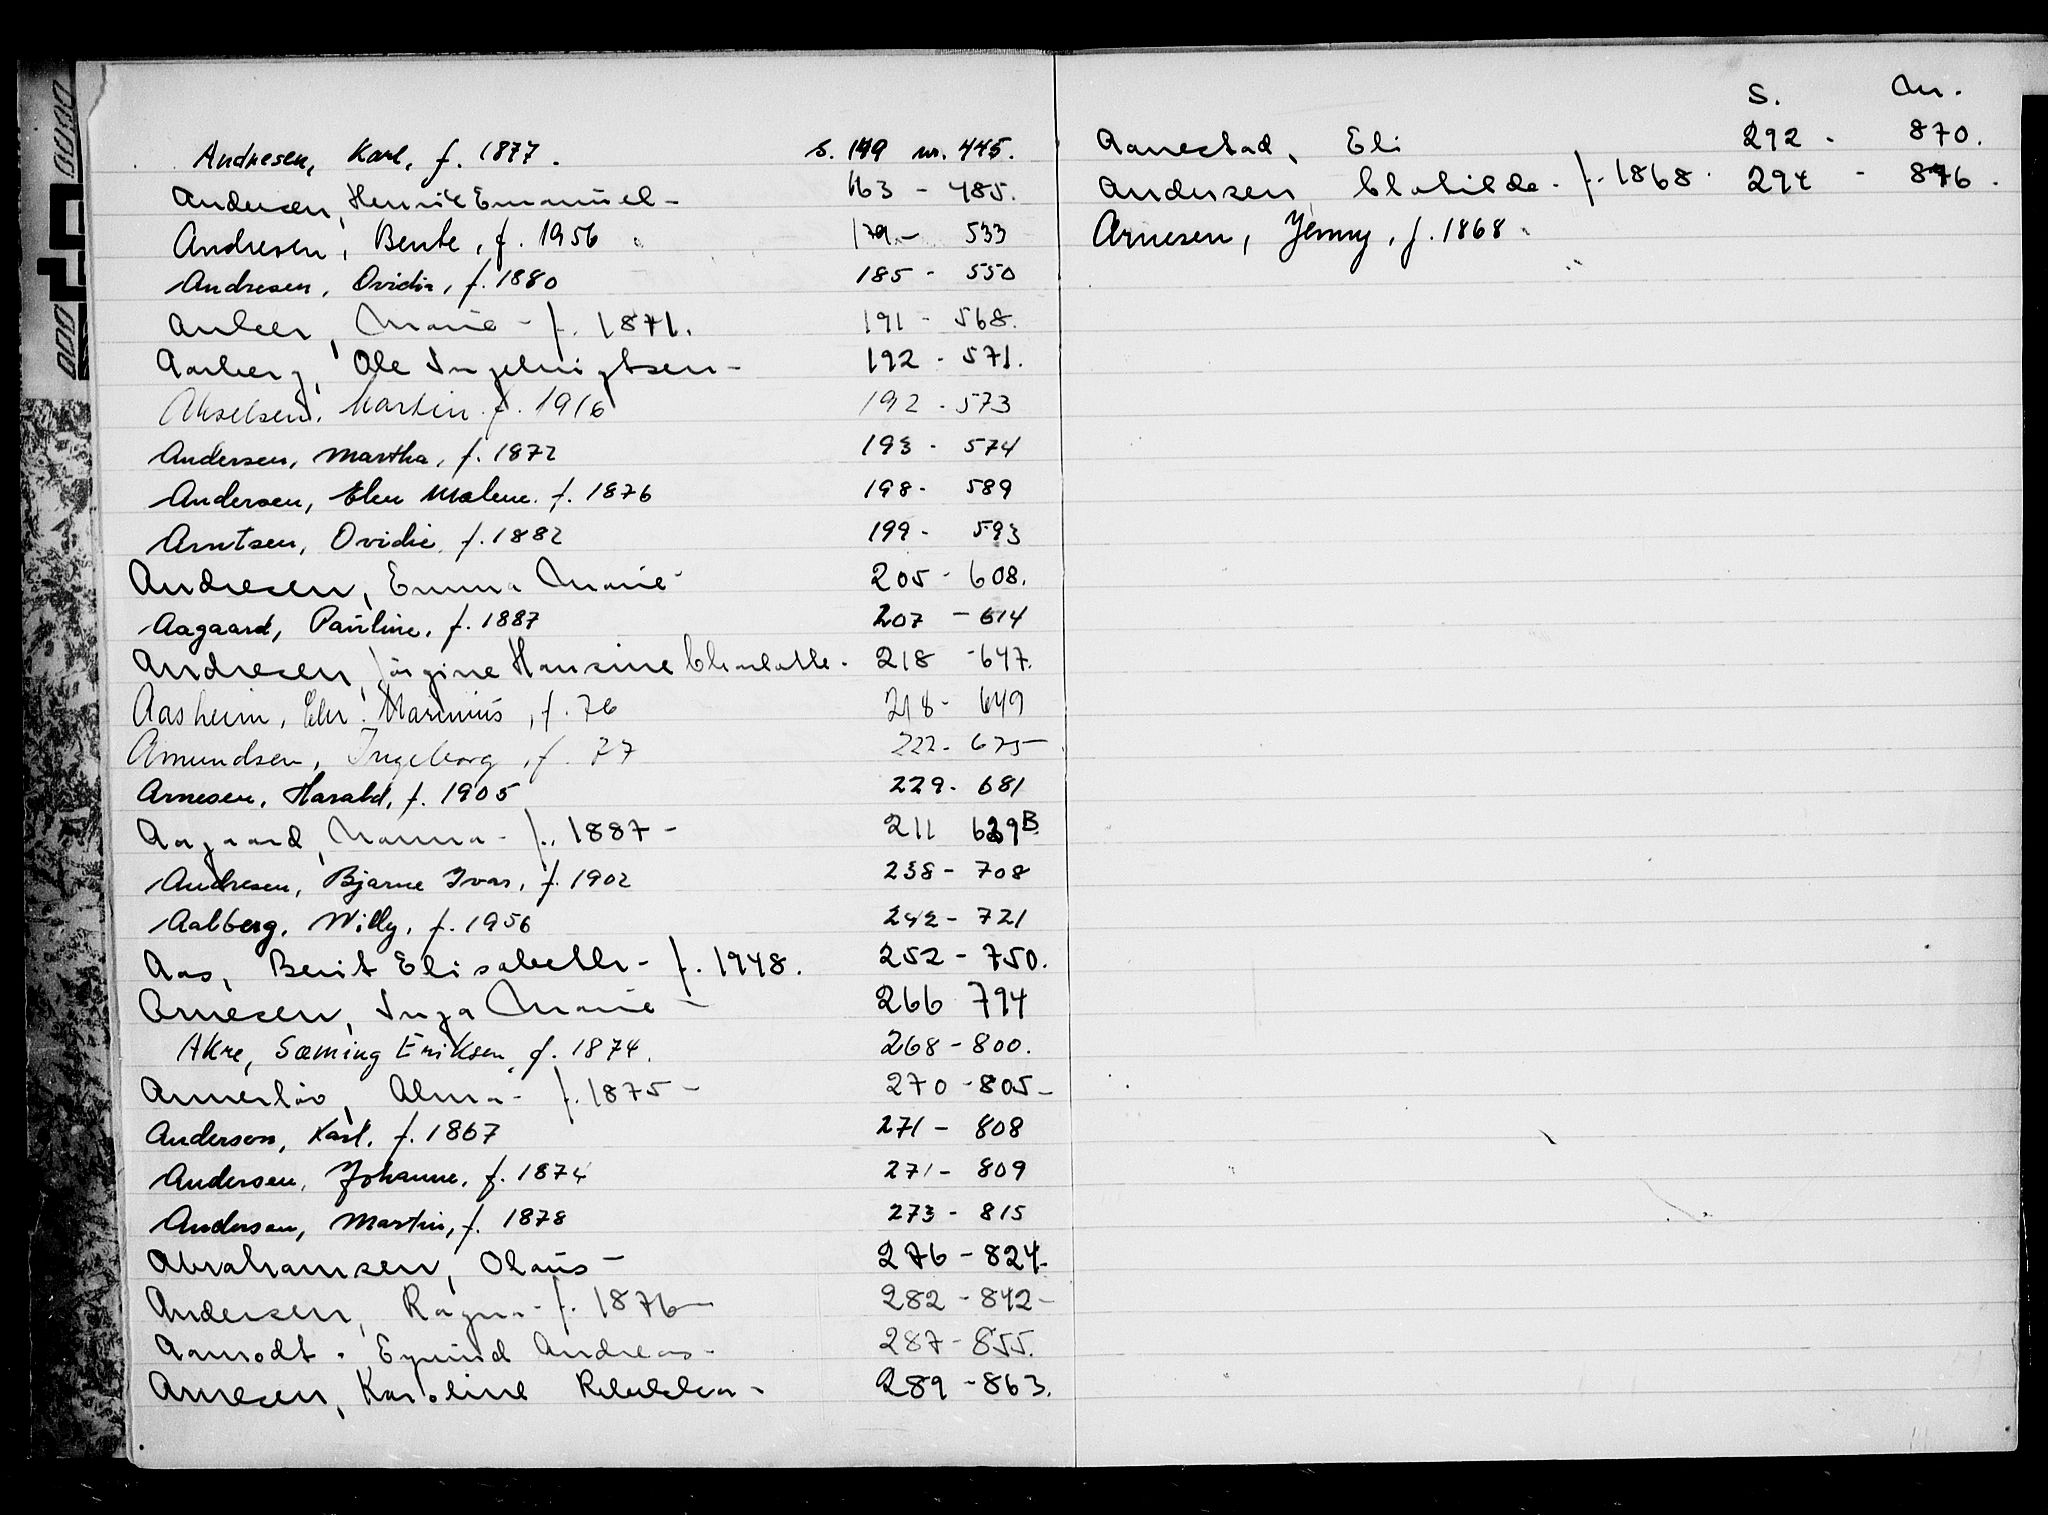 Andresen, Karl, f. 1877. s. 149 nr. 445.
Andersen, Henrik Emanuel - 163 - 485.
Andresen, Bente, f. 1956 179 - 533
Andresen, Ovidia, f. 1880 185 - 550
Anker, Marie - f. 1871. 191 - 568.
Aarberg, Ole Ingebrigtsen - 192 - 571.
Akselsen, Martin f. 1916 192 - 573
Andersen, Martha, f. 1872 193 - 574
Andersen, Elen Malene. f. 1876 198 - 589
Arntsen, Ovidie, f. 1882 199 - 593
Andresen, Emma Marie - 205 - 608.
Aagaard, Pauline, f. 1887 207 - 614
Andresen, Jörgine Hansine Charlotte - 218 - 647.
Aasheim, Marinius, f. 76 218 - 649
Amundsen, Ingeborg, f. 77 222 - 675
Arnesen, Harald, f. 1905 229 - 681
Aagaard, Nanna - f. 1887 - 211 629 B
Andresen, Bjarne Ivar, f. 1902 238 - 708
Aalberg, Willy, f. 1956 242 - 721
Aas, Berit Elisabeth - f. 1948. 252 - 750.
Arnesen, Inga Marie - 266 794
Akre, Sæming Eriksen, f. 1874. 268 - 800.
Annerløv, Alma - f. 1875 - 270 - 805 -
Anderson, Karl, f. 1867 271 - 808
Andersen, Johanne, f. 1874 271 - 809
Andersen, Martin, f. 1878 273 - 815
Abrahamsen, Olaus - 276 - 824.
Andersen, Ragna - f. 1876 - 282 - 842 -
Aamodt, Eyvind Andreas - 287 - 855.
Arnesen, Karoline Rebekka - 289 - 863.
S. Nr.
Aanestad, Eli 292 - 870.
Andersen, Clotilde - f. 1868. 294 - 876.
Arnesen, Jenny, f. 1868.